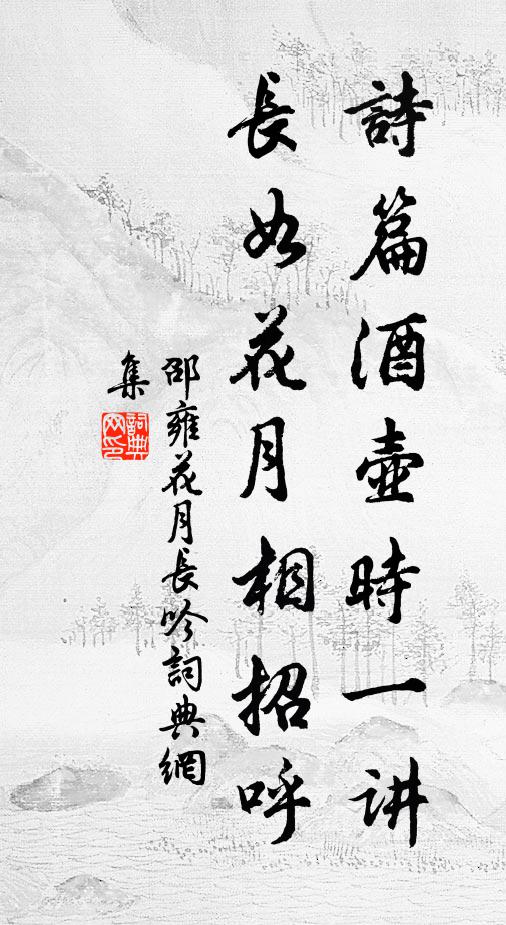 詩篇酒壺時一讲
長如花月相招呼
邵雍花月長吟詞典網
集
詞典網印